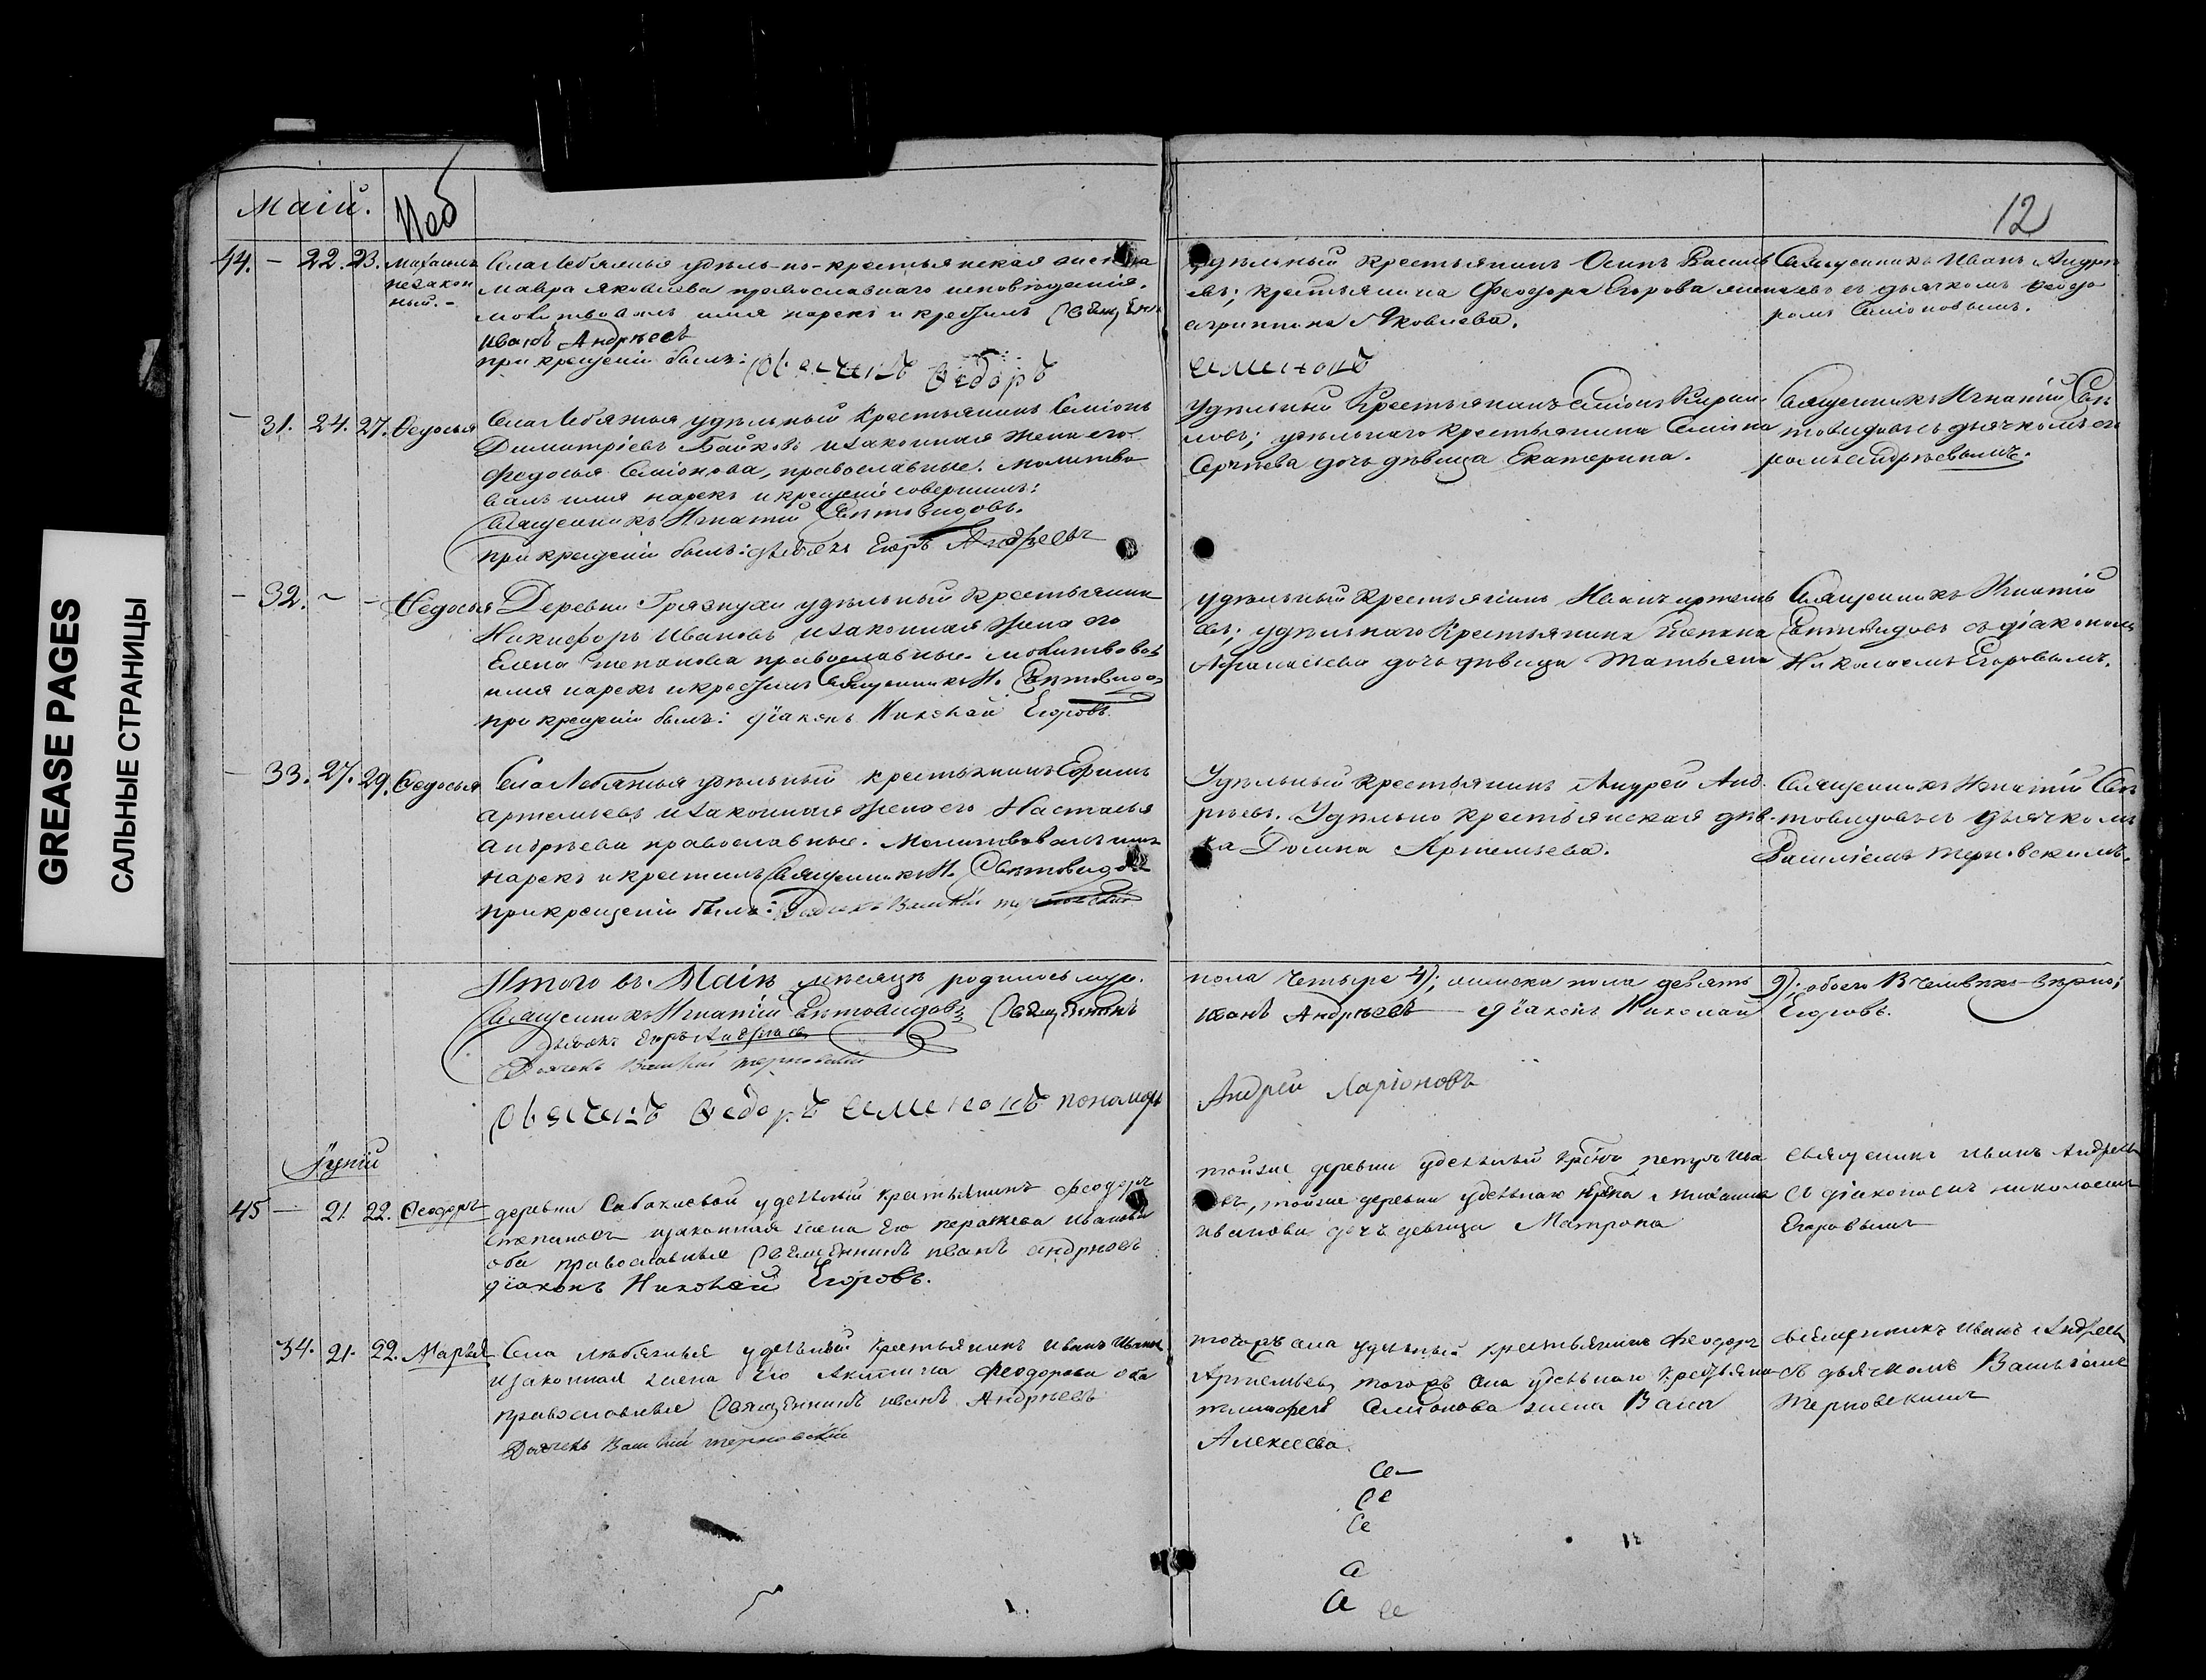 GREASE PAGES
САЛЬНЫЕ СТРАНИЦЫ
Маіи.
12
44. — 22. 23. Михаилъ незаконный. —
Села Лебяжья удѣльно-крестьянская
Мавра Яковлева православнаго исповѣданія.
молитвовалъ имя нарекъ и крестилъ
Иванъ Андрѣевъ
при крещеніи былъ: Федоръ
удѣльный крестьянинъ Осипъ Василь
евъ; крестьянина Феодора Егорова жена
агрипина Яковлева.
Семеновъ
Священникъ Иванъ Андрѣ
евъ съ дьячкомъ Феодо
ромъ Семіоновымъ.
— 31. 24. 27. Ѳедосья
Села Лебяжья удѣльный крестьянинъ Семіонъ
Димитріевъ Байковъ и законная жена его
Федосья Семіонова, православные. молитво
валъ имя нарекъ и крещеніе совершилъ:
Священникъ Игнатій Свѣтовидовъ.
при крещеніи былъ: дьячекъ Егоръ Андреевъ
Удѣльный Крестьянинъ Семіонъ Кирил
ловъ; удѣльнаго крестьянина Семіона
Сергѣева дочь дѣвица Екатерина.
Священникъ Игнатій Свѣ
товидовъ съ дьячкомъ Его
ромъ Андрѣевымъ.
— 32. — — Ѳедосья
Деревни Грязнухи удѣльный крестьянинъ
Никифоръ Ивановъ и законная жена его
Елена Степанова православные. молитвовалъ
имя нарекъ и крестилъ Священникъ И. Свѣтовидовъ
при крещеніи былъ: діаконъ Николай Егоровъ.
удѣльный крестьянинъ Иванъ артемь
евъ; удѣльнаго крестьянина Степана
Афанасьева дочь дѣвица Татьяна
Священникъ Игнатій
Свѣтовидовъ съ діакономъ
Николаемъ Егоровымъ.
— 33. 27. 29. Ѳедосья
Села Лебяжья удѣльный крестьянинъ Ефимъ
Артемьевъ и законная жена его Настасья
Андрѣева православные. Молитвовалъ имя
нарекъ и крестилъ Священникъ И. Свѣтовидовъ
при крещеніи былъ: Дьячекъ Василій терновскій
Удѣльный крестьянинъ Андрей Анд
рѣевъ. Удѣльно крестьянская дѣв
ка Домна Артемьева.
Священникъ Игнатій Свѣ
товидовъ съ дьячкомъ
Василіемъ Терновскимъ.
Итого въ Маіѣ мѣсяцѣ родилось муж.
пола четыре 4); женска пола девять 9); обоего 13 человѣкъ — вѣрно;
Священникъ Игнатій Свѣтовидовъ Священникъ
Иванъ Андрѣевъ діаконъ Николай Егоровъ.
дьячекъ Егоръ Андрѣевъ
Дьячекъ Василій терновскій
Федоръ Семеновъ пономарь
Андрей Ларіоновъ
Іуній
45 — 21. 22. Ѳеодоръ
деревни Собакаевой удельный крестьянинъ Феодоръ
Степановъ и законная жена его Иванова
оба православные Священникъ иванъ андрѣевъ
діаконъ Николай Егоровъ.
тойже деревни удельный Петръ Ива
новъ, тойже деревни удельнаго Михаила
иванова дочь девица Матрона
священикъ иванъ Андреевъ
съ діакономъ николаемъ
Егоровымъ
34. 21. 22. Марья
Села любяжья удельный крестьянинъ иванъ
и законная жена его Акилина Феодорова оба
православные Священникъ иванъ Андрѣевъ
Дьячекъ Василій терновскій
тогожъ села удельный крестьянинъ Феодоръ
Артемьевъ, тогожъ села удельнаго крестьянина
тимофея Семионова жена Васса
Алексеева.
священникъ иванъ Андреевъ
съ дьячкомъ Василіемъ
Терновскимъ
Се
Се
Се
а
а се